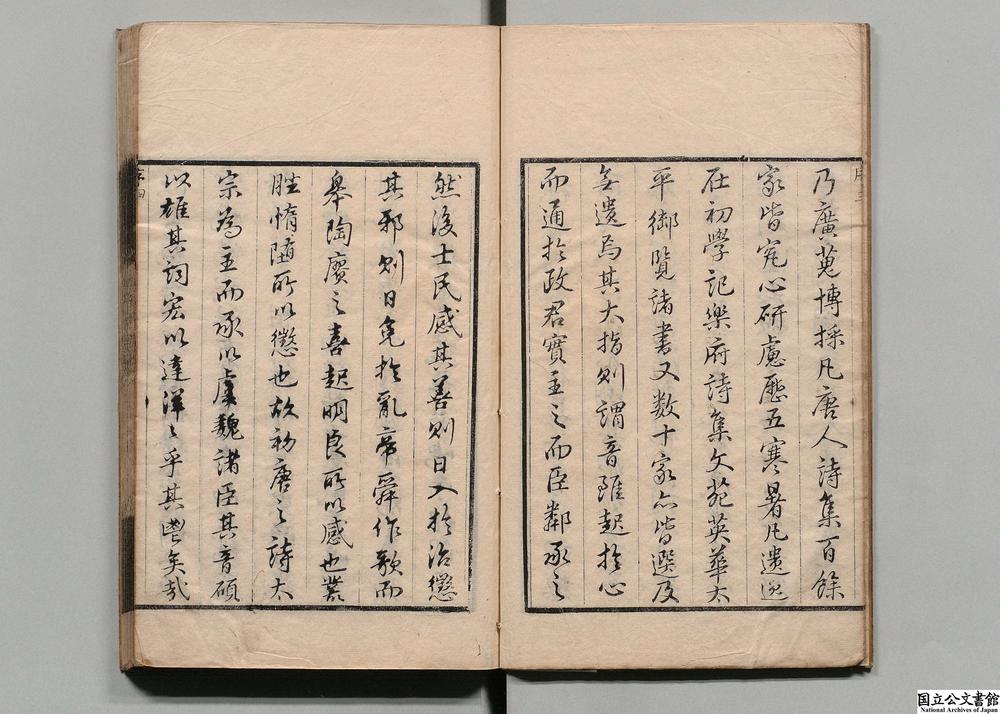 乃廣蒐博採凡唐人詩集百餘
家皆究心研慮歷五寒暑凡遺逸
在初學記樂府詩集文苑英華太
平御覽諸書又数十家亦皆選及
無遺焉其大指則謂音雖起於心
而通於政君實主之而臣鄰承之
然後士民感其善則日入於治懲
其邪則日免於亂帝舜作歌而
皋陶賡之喜起明良所以感也叢
脞惰墮所以懲也故初唐之詩太
宗為主而承以虞魏諸臣其音碩
以雄其詞宏以達洋〻乎其盛矣哉
序三
序四
国立公文書館
National Archives of Japan